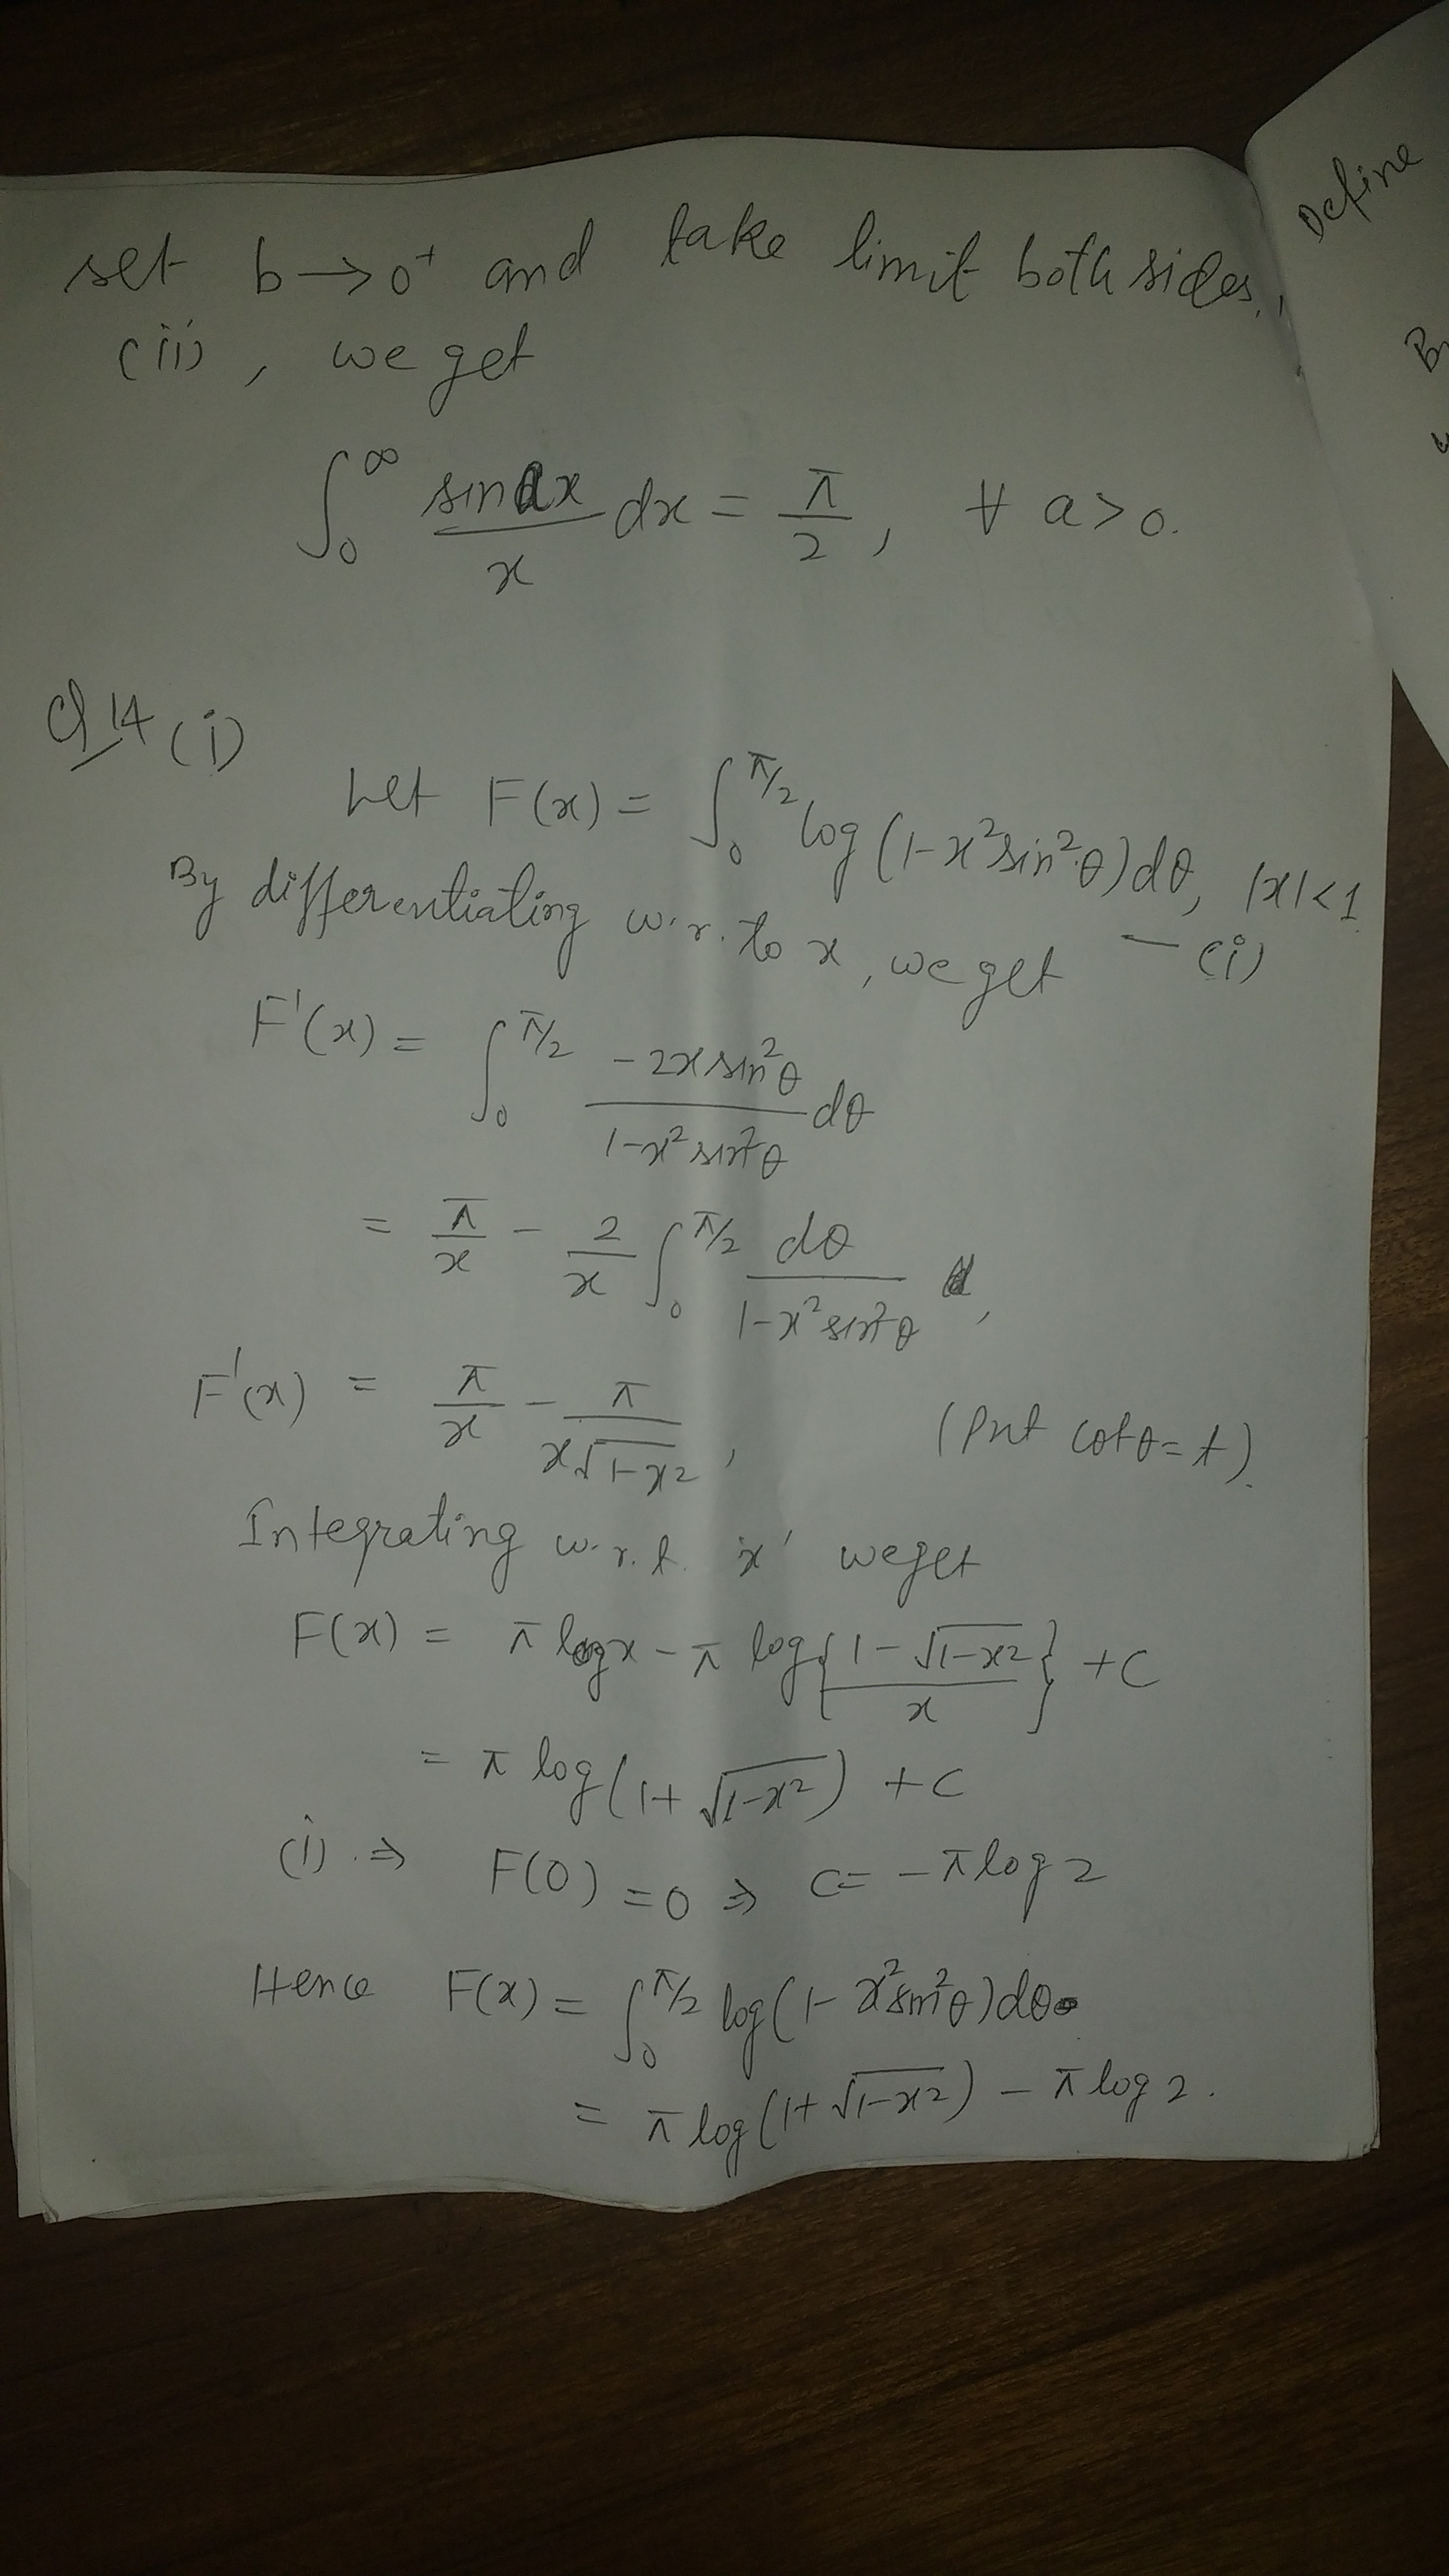 set b → 0⁺ and take limit both sides,
(ii), we get
∫₀^∞ sin ax / x dx = π/2, ∀ a > 0.
Q14 (i)
Let F(x) = ∫₀^{π/2} log(1-x²sin²θ)dθ, |x|<1
— (i)
By differentiating w.r. to x, we get
F'(x) = ∫₀^{π/2} -2x sin²θ / 1-x² sin²θ dθ
= π/x - 2/x ∫₀^{π/2} dθ / 1-x² sin²θ ,
F'(x) = π/x - π / x√1-x² , (Put cotθ = t).
Integrating w.r.t. 'x' we get
F(x) = π log x - π log{1-√1-x² / x} + C
= π log(1+ √1-x²) + C
(i) ⇒ F(0) = 0 ⇒ C = -π log 2
Hence F(x) = ∫₀^{π/2} log(1- x²sin²θ)dθ
= π log(1+ √1-x²) - π log 2.
Define